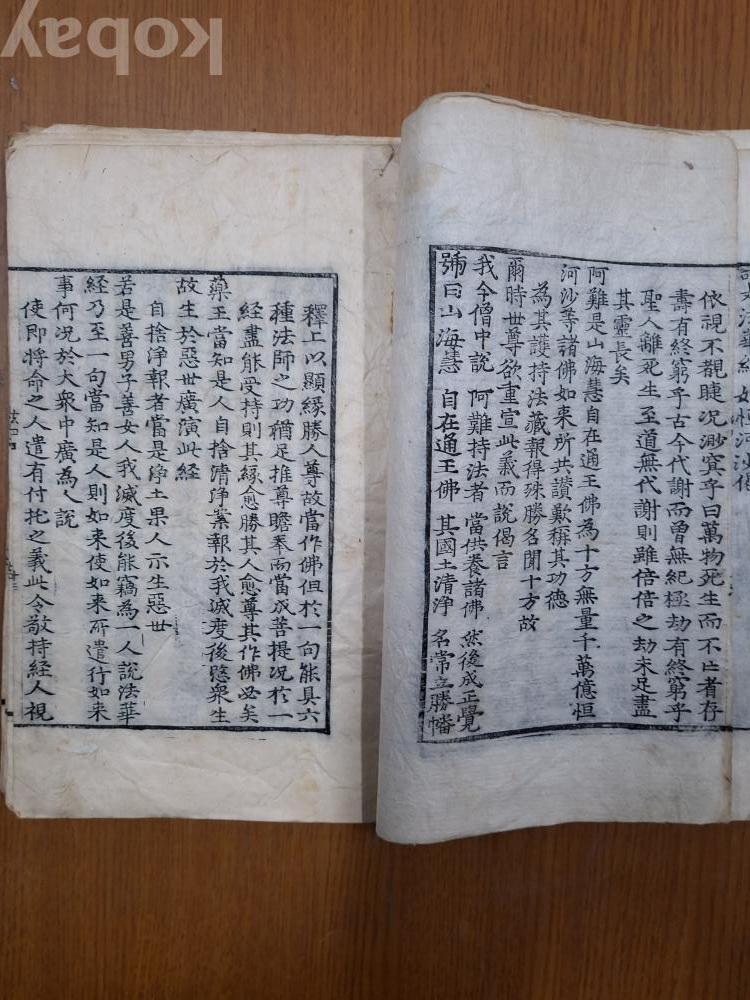 kobay
依視不覩睫况渺㝠乎曰萬物死生而不亡者存
壽有終窮乎古今代謝而曾無紀極劫有終窮乎
聖人離死生至道無代謝則雖倍倍之劫未足盡
其靈長矣
阿難是山海慧自在通王佛為十方無量千萬億恒
河沙等諸佛如来所共讃歎稱其功德
為其護持法藏報得殊勝名聞十方故
爾時世尊欲重宣此義而說偈言
我今僧中說 阿難持法者 當供養諸佛 然後成正覺
號曰山海慧 自在通王佛 其國土清淨 名常立勝幡
釋上以顯緣勝人尊故當作佛但於一句能具六
種法師之功稍足推尊瞻奉而當成菩提况於一
経盡能受持則其緣愈勝其人愈尊其作佛必矣
藥王當知是人自捨清淨業報於我滅度後愍衆生
故生於惡世廣演此経
自捨淨報者當是淨土果人示生惡世
若是善男子善女人我滅度後能竊為一人說法華
経乃至一句當知是人則如来使如来所遣行如来
事何况於大衆中廣為人說
使即將命之人遣有付托之義此令敬持経人視